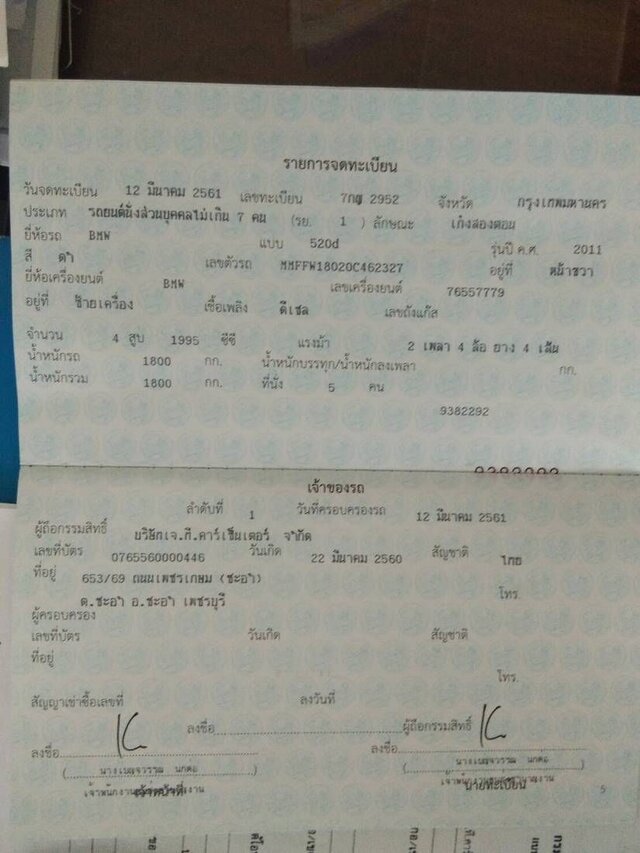 รายการจดทะเบียน
วันจดทะเบียน 12 มีนาคม 2561 เลขทะเบียน 7กญ 2952 จังหวัด กรุงเทพมหานคร
ประเภท รถยนต์นั่งส่วนบุคคลไม่เกิน 7 คน (รย. 1 ) ลักษณะ เก๋งสองตอน
ยี่ห้อรถ BMW แบบ 520d รุ่นปี ค.ศ. 2011
สี ดำ เลขตัวรถ MMFFW18020C462327 อยู่ที่ หน้าขวา
ยี่ห้อเครื่องยนต์ BMW เลขเครื่องยนต์ 76557779
อยู่ที่ ซ้ายเครื่อง เชื้อเพลิง ดีเซล เลขถังแก๊ส
จำนวน 4 สูบ 1995 ซีซี แรงม้า 2 เพลา 4 ล้อ ยาง 4 เส้น
น้ำหนักรถ 1800 กก. น้ำหนักบรรทุก/น้ำหนักลงเพลา กก.
น้ำหนักรวม 1800 กก. ที่นั่ง 5 คน
9382292
เจ้าของรถ
ลำดับที่ 1 วันที่ครอบครองรถ 12 มีนาคม 2561
ผู้ถือกรรมสิทธิ์ บริษัทเจ.ที.คาร์เซ็นเตอร์ จำกัด
เลขที่บัตร 0765560000446 วันเกิด 22 มีนาคม 2560 สัญชาติ ไทย
ที่อยู่ 653/69 ถนนเพชรเกษม (ชะอำ)
ต.ชะอำ อ.ชะอำ เพชรบุรี โทร.
ผู้ครอบครอง
เลขที่บัตร วันเกิด สัญชาติ
ที่อยู่
โทร.
สัญญาเช่าซื้อเลขที่ ลงวันที่
ลงชื่อ ผู้ถือกรรมสิทธิ์
ลงชื่อ ลงชื่อ
(นางเบญจวรรณ) (นางเบญจวรรณ)
เจ้าหน้าที่ นายทะเบียน
5